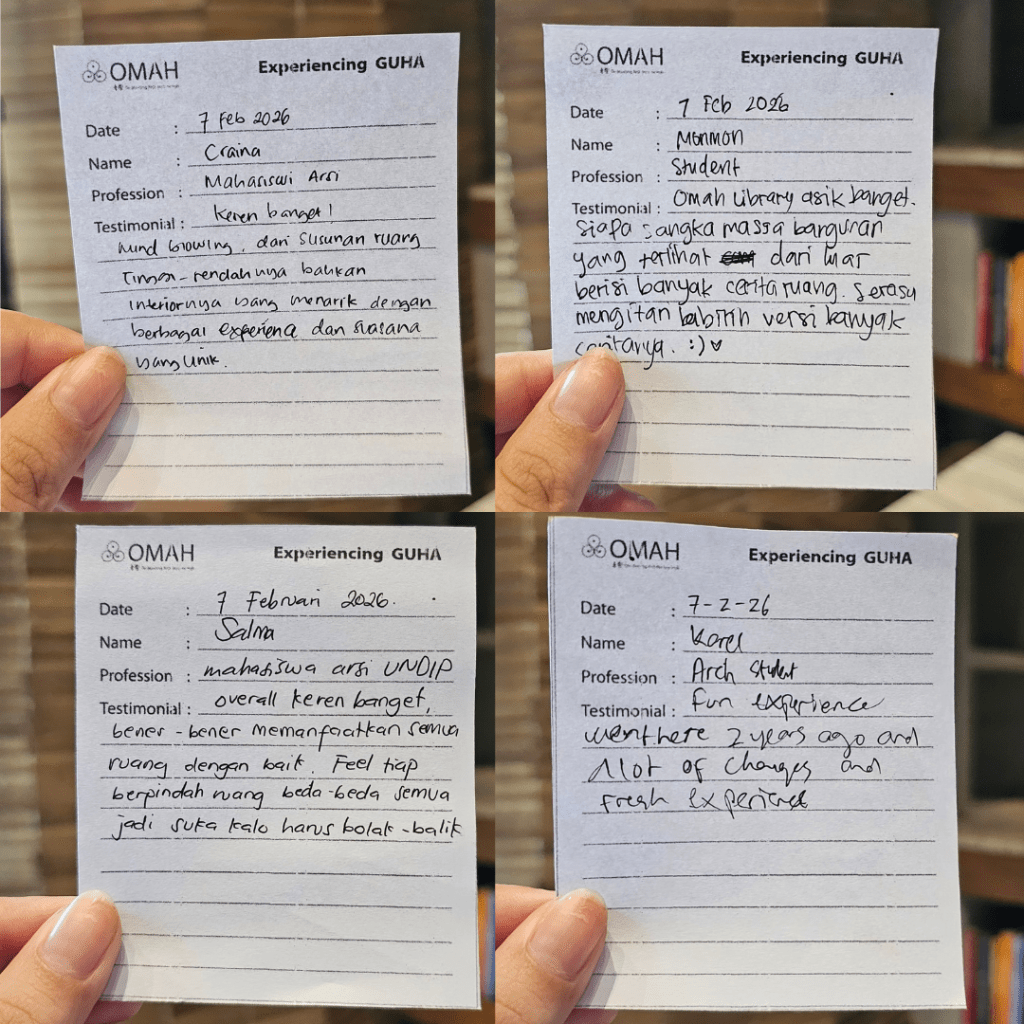 OMAH
Experiencing GUHA
Date : 7 Feb 2026
Name : Craina
Profession : Mahasiswi Arsi
Testimonial : Keren banget!
Mind blowing, dari susunan ruang
Tinggi-rendahnya bahkan
Interiornya yang menarik dengan
berbagai experience dan suasana
yang unik.
OMAH
Experiencing GUHA
Date : 7 Feb 2026
Name : Monmon
Profession : Student
Testimonial : Omah Library asik banget.
Siapa sangka massa bangunan
yang terlihat dari luar
berisi banyak cerita ruang. Serasa
labirin versi banyak
ceritanya. :) ♥
OMAH
Experiencing GUHA
Date : 7 Februari 2026.
Name : Salma
Profession : mahasiswa arsi UNDIP
Testimonial : overall keren banget,
bener-bener memanfaatkan semua
ruang dengan baik. Feel tiap
berpindah ruang beda-beda semua
jadi suka kalo harus bolak-balik
OMAH
Experiencing GUHA
Date : 7-2-26
Name : Karel
Profession : Arch Student
Testimonial : Fun experience
went here 2 years ago and
Alot of changes and
Fresh experience